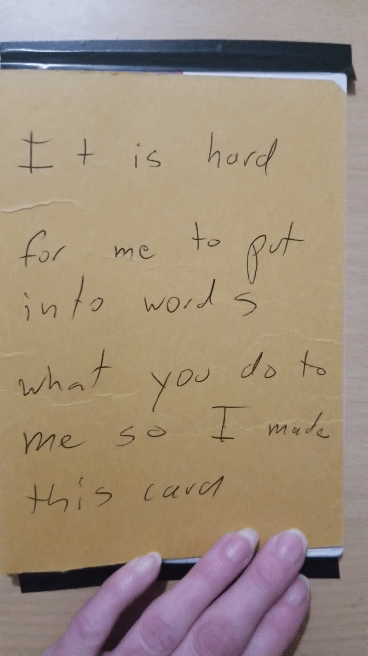 It is hard
for me to put
into words
what you do to
me so I made
this card